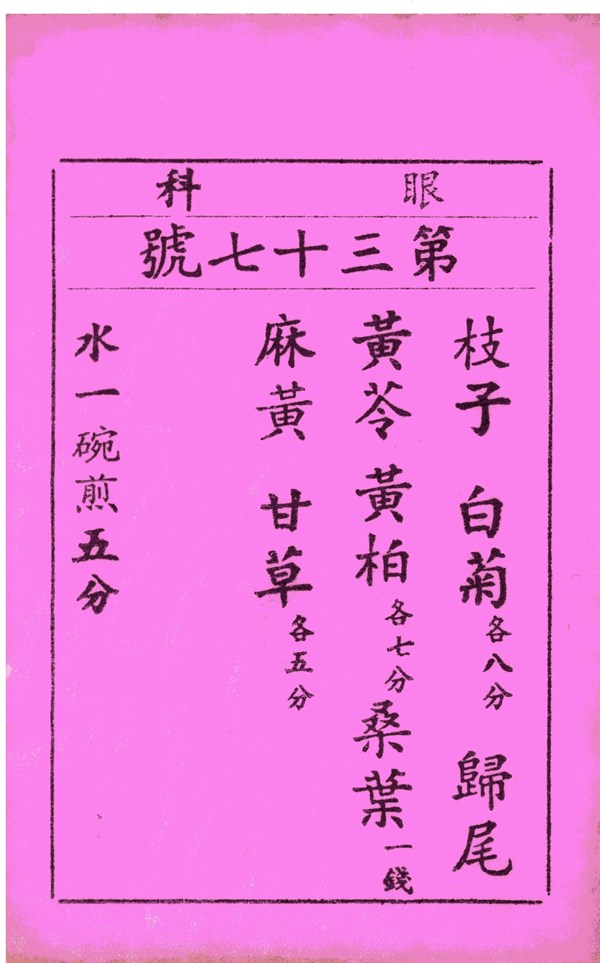 眼科
第三十七號
枝子 白菊各八分 歸尾
黃芩 黃柏各七分 桑葉一錢
麻黃 甘草各五分
水一碗煎五分